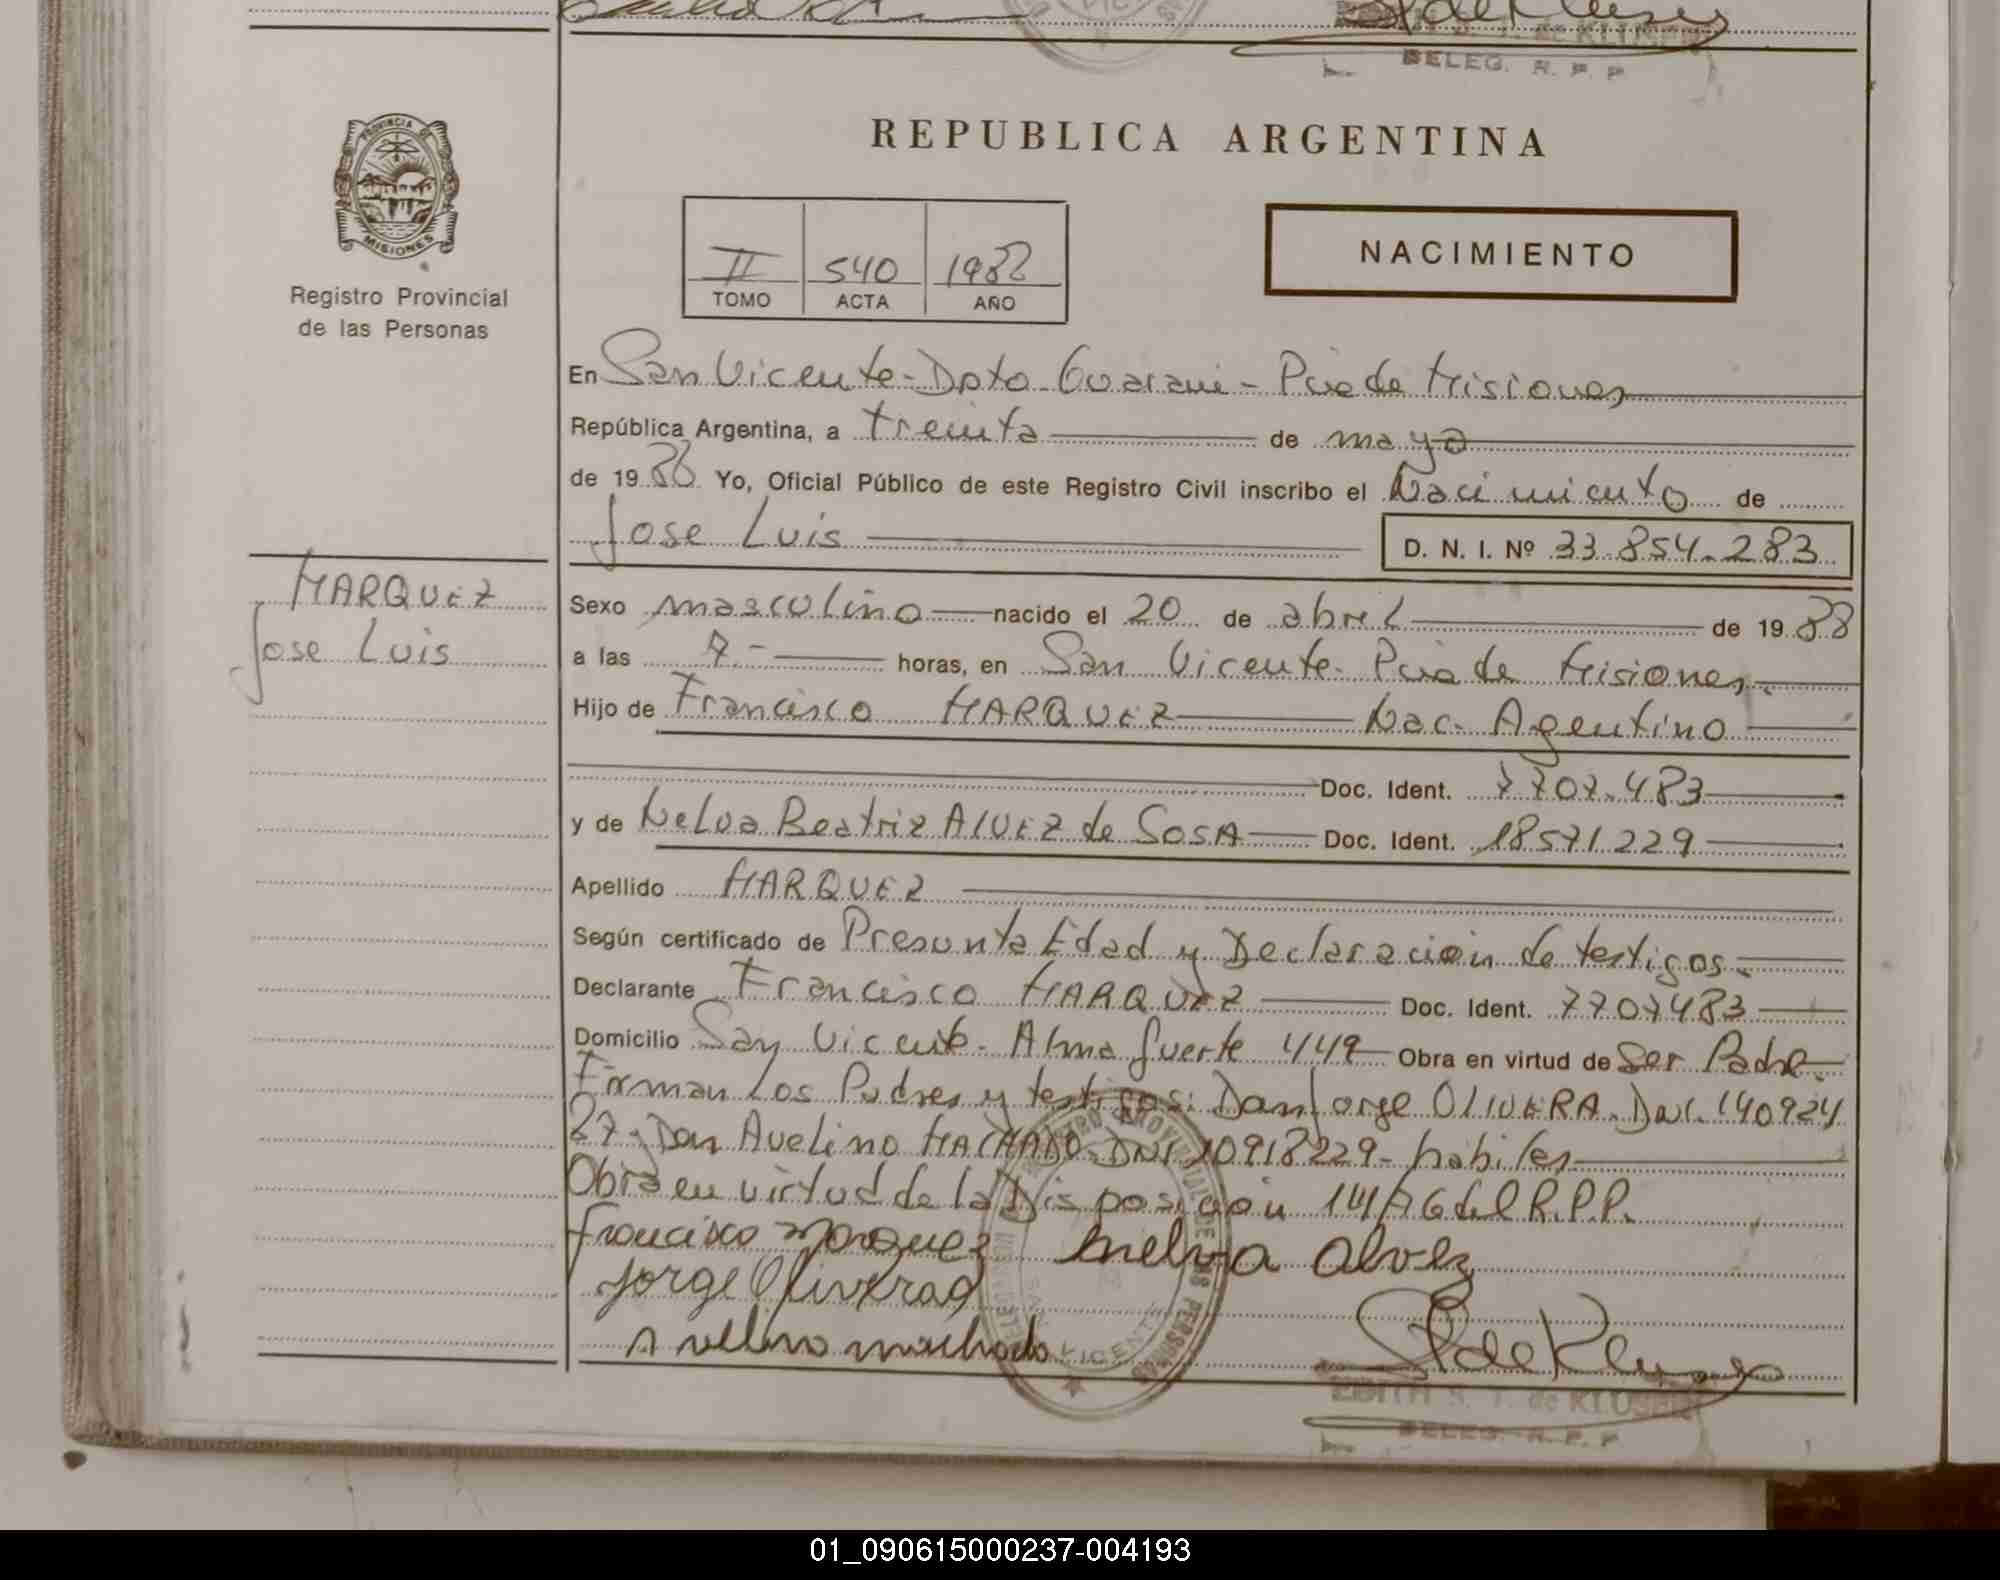 de KLUSEN
DELEG. R. P. P.
PROVINCIA DE
MISIONES
Registro Provincial
de las Personas
REPUBLICA ARGENTINA
II 540 1988
TOMO ACTA AÑO
NACIMIENTO
En San Vicente - Dpto Guarani - Pcia de Misiones
República Argentina, a treinta de mayo
de 1988 Yo, Oficial Público de este Registro Civil inscribo el Nacimiento de
Jose Luis D. N. I. Nº 33.854.283
MARQUEZ
Jose Luis
Sexo masculino nacido el 20 de abril de 1988
a las 7.- horas, en San Vicente - Pcia de Misiones.
Hijo de Francisco MARQUEZ Nac. Agentino
Doc. Ident. 7707.483
y de Nelva Beatriz ALVEZ de SOSA Doc. Ident. 18571229
Apellido MARQUEZ
Según certificado de Presunta Edad y Declaración de testigos.
Declarante Francisco MARQUEZ Doc. Ident. 7707483
Domicilio San Vicente - Alma fuerte 449 Obra en virtud de Ser Padre.
Firman Los Padres y testigos: Don Jorge OLIVERA. DNI. 140924
27 - Don Avelino MACHADO - DNI 10918229 - habiles
Obra en virtud de la Disposición 14/76 del R.P.P.
Francisco Marquez Melva Alvez
Jorge Oliverad
Avellino machado
REGISTRO PROVINCIAL DE LAS PERSONAS
SAN VICENTE
EDITH S. T. de KLUSEN
DELEG. R. P. P.
01_090615000237-004193